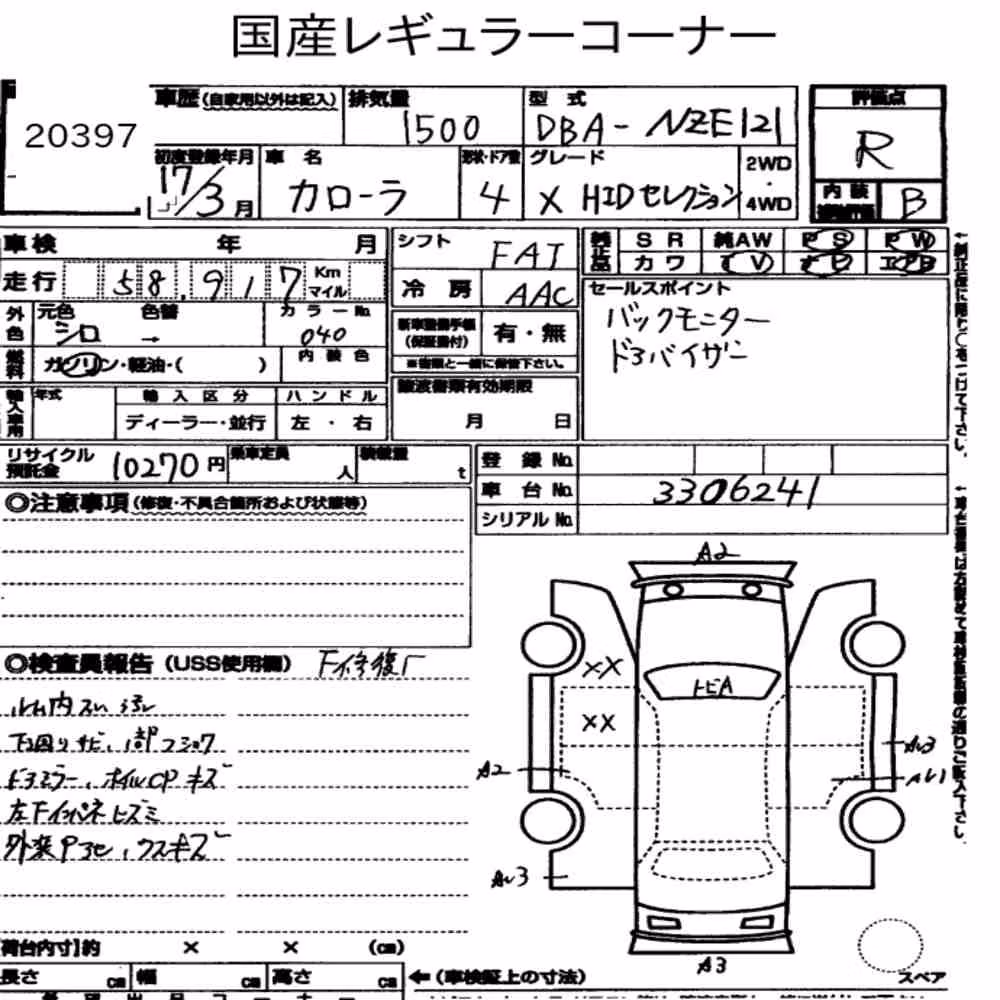 国産レギュラーコーナー
20397
車歴(自家用以外は記入) 排気量 1500 型式 DBA-NZE121 評価点 R
初度登録年月 17/3月 車名 カローラ 形状・ドア数 4 グレード X HIDセレクション 2WD・4WD 内装 B
車検 年 月 シフト FAT 純正品 SR 純AW PS PW
走行 58,917 Km マイル 冷房 AAC カワ TV
外色 元色 シロ 色替 → カラーNo. 040
セールスポイント
バックモニター
ドアバイザー
燃料 ガソリン・軽油・( ) 内装色
新車整備手帳(保証書付) 有・無
※書類と一緒に保管下さい。
輸入車用 年式 輸入区分 ハンドル
ディーラー・並行 左・右
譲渡書類有効期限
月 日
リサイクル預託金 10270円 乗車定員 人 積載量 t
登録No.
車台No. 3306241
シリアルNo.
◎注意事項(修復・不具合箇所および状態等)
◎検査員報告(USS使用欄) F修復
下回りサビ、
ドアミラー、ホイルCP キズ
左Fインパネ ヒズミ
ウスキズ
A2
XX
トビA
XX
A2
A3
荷台内寸】約 × × (cm)
長さ cm 幅 cm 高さ cm ←(車検証上の寸法)
スペア